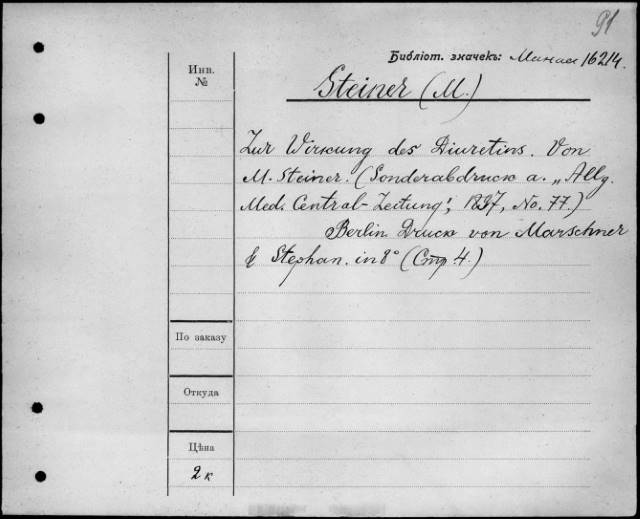 91
Библіот. значекъ: Минаев 16214.
Инв.
№
Steiner (M.)
Zur Wirkung des Diuretins. Von
M. Steiner. (Sonderabdruck a. „Allg.
Med. Central-Zeitung", 1897, No. 77.)
Berlin Druck von Marschner
& Stephan. in 8° (Стр 4.)
По заказу
Откуда
Цѣна
2 к